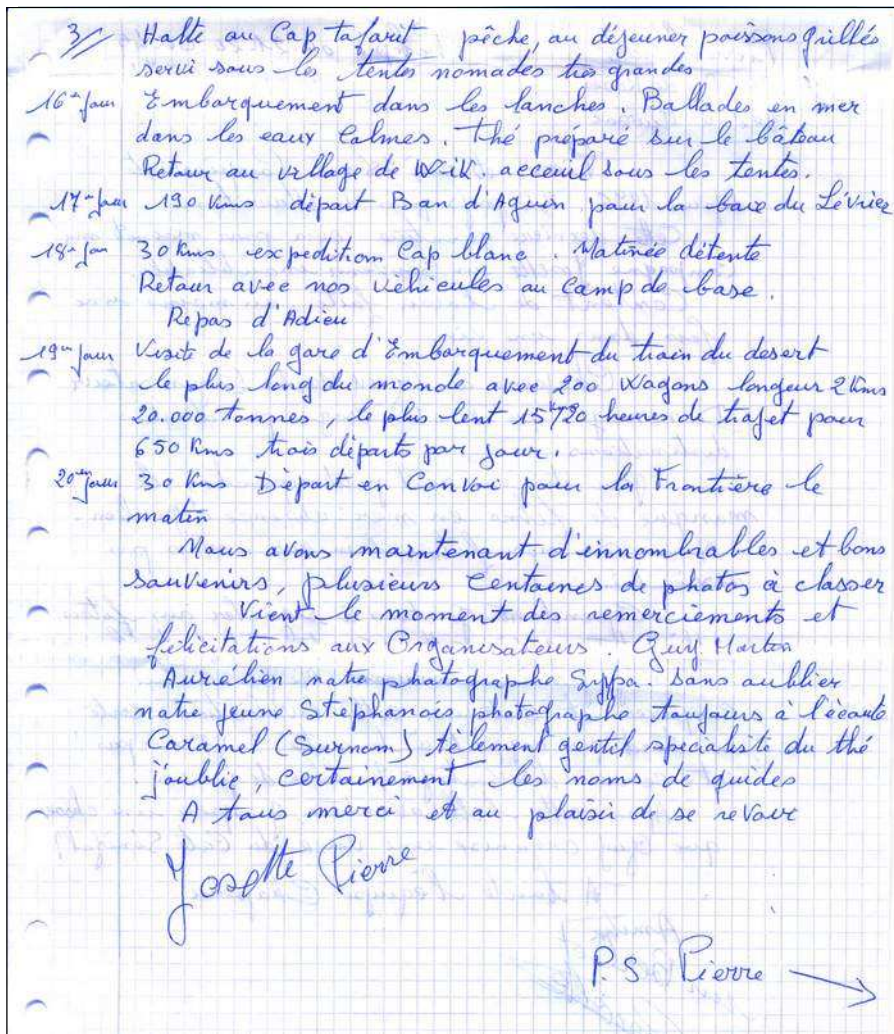 3// Halte au Cap tafarit pêche, au déjeuner poissons grillés
servi sous les tentes nomades très grandes
16em jour Embarquement dans les lanches. Ballades en mer
dans les eaux Calmes. thé préparé sur le bâteau
Retour au village de Wik. acceuil sous les tentes.
17em jour 190 Kms départ Ban d'Aguin pour la baie du Lévrier
18em jour 30 Kms expedition Cap blanc. Matinée détente
Retour avec nos véhicules au Camp de base.
Repas d'Adieu
19em jour Visite de la gare d'Embarquement du train du desert
le plus long du monde avec 200 Wagons longeur 2 Kms
20.000 tonnes, le plus lent 15 à 20 heures de trajet pour
650 Kms trois départs par jour.
20em jour 30 Kms Départ en Convoi pour la Frontière le
matin
Nous avons maintenant d'innombrables et bons
souvenirs, plusieurs Centaines de photos à classer
Vient le moment des remerciements et
félicitations aux Organisateurs. Guy. Martin
Aurélien notre photographe Syppa. sans oublier
notre jeune Stéphanois photographe toujours à l'écoute
Caramel (Surnom) tèlement gentil spécialiste du thé
j'oublie, certainement les noms de guides
A tous merci et au plaisir de se revoir
Josette Pierre
P.S. Pierre →